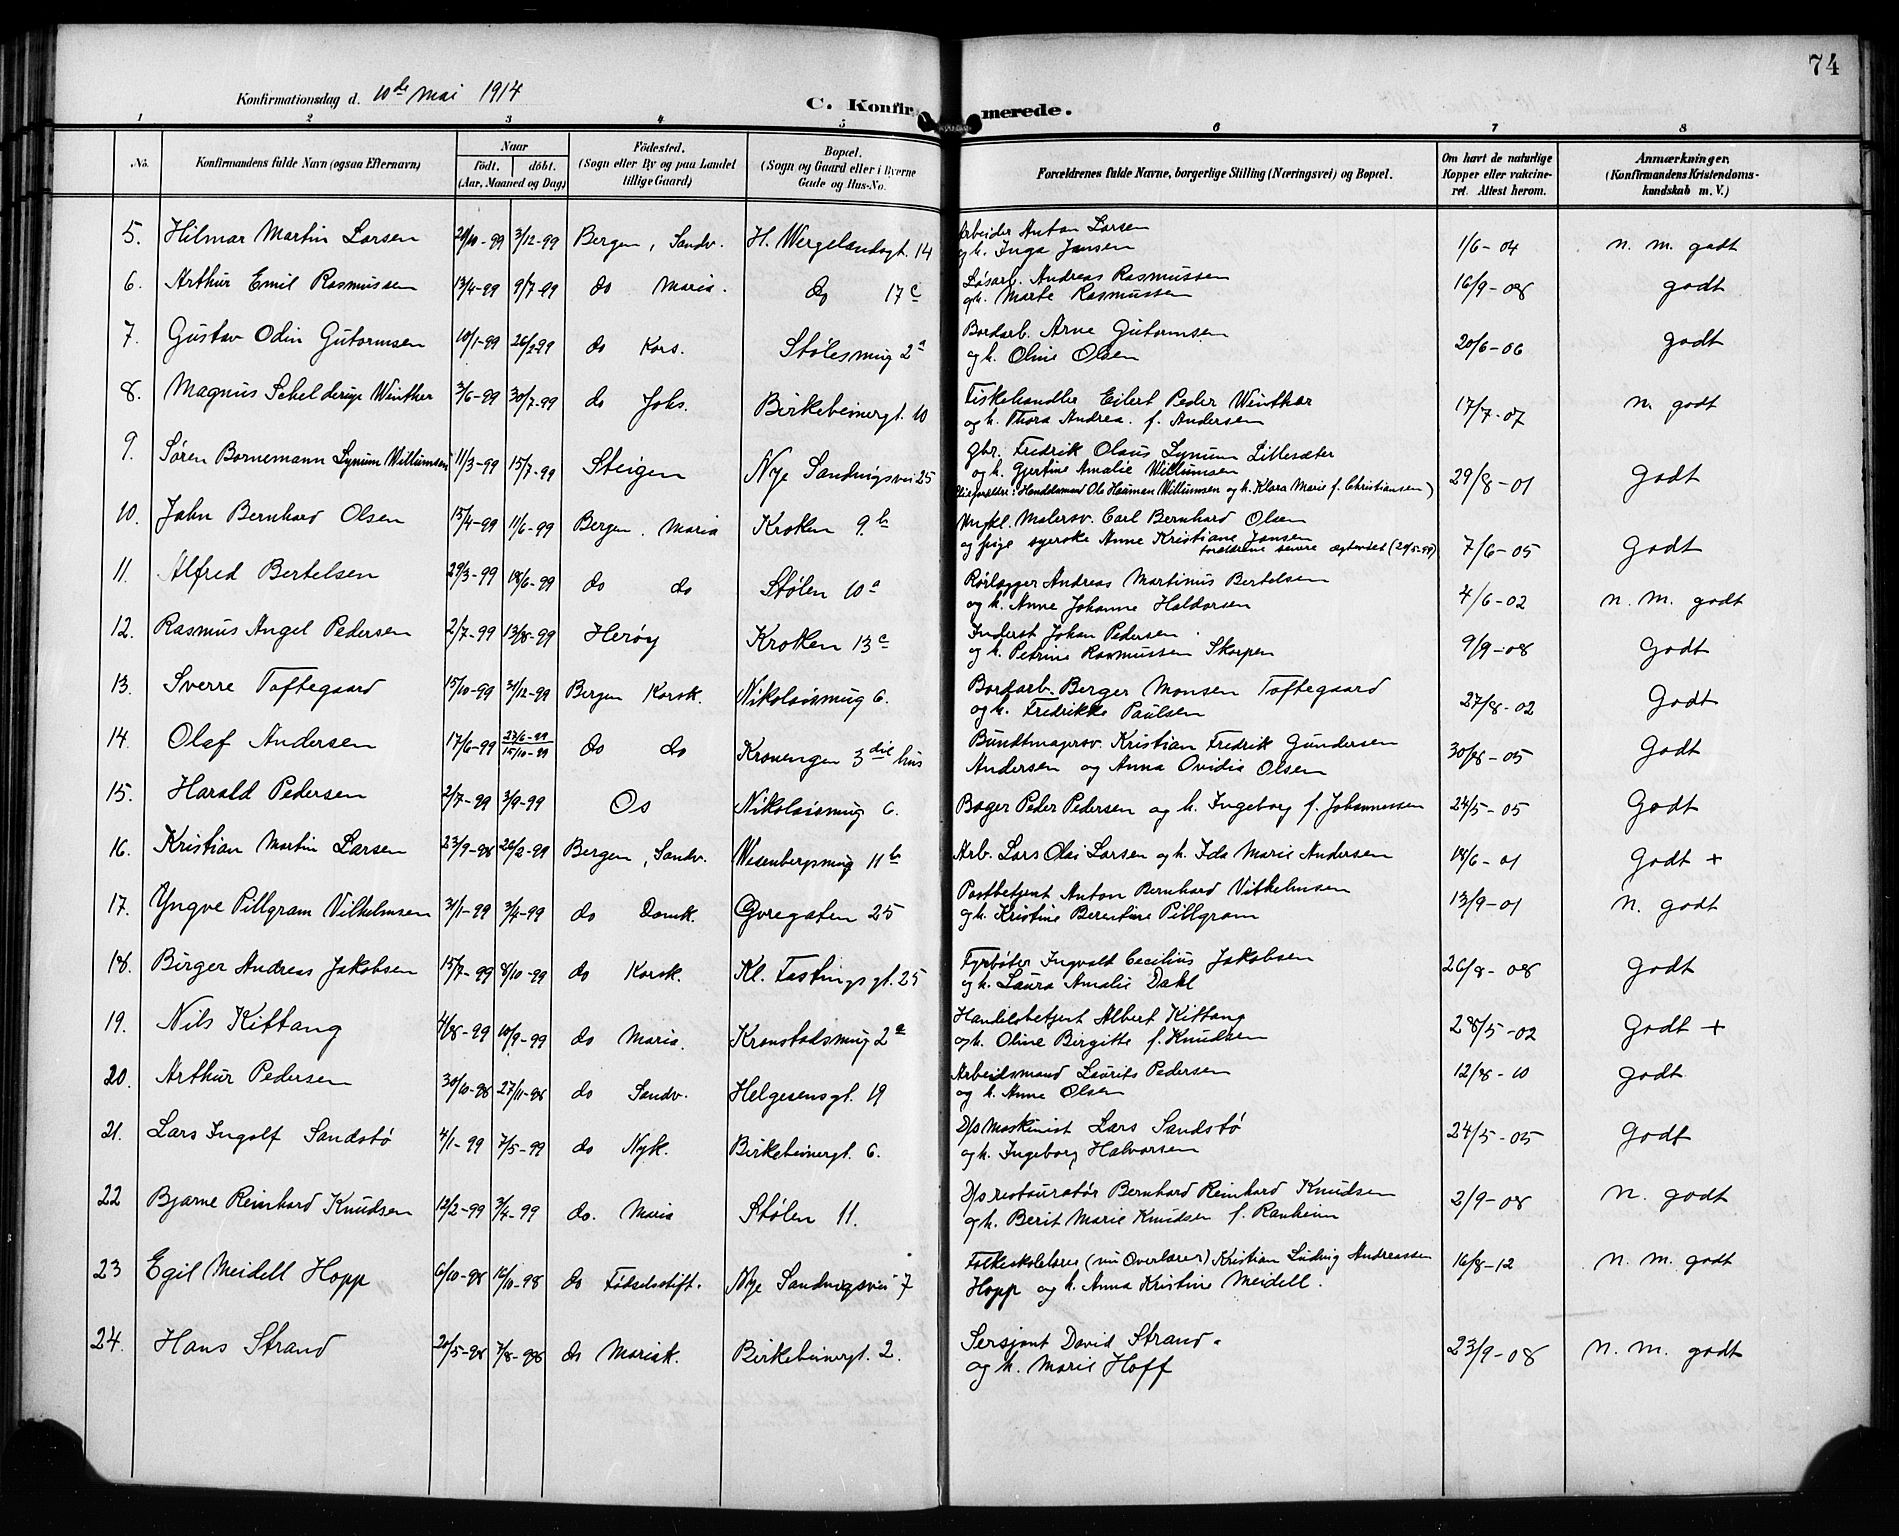 74
Konfirmationsdag d. 10de mai 1914
C. Konfirmerede.
1 2 3 4 5 6 7 8
No. Konfirmandens fulde Navn (ogsaa Efternavn) Naar født. døbt. (Aar, Maaned og Dag) Fødested. (Sogn eller By og paa Landet tillige Gaard) Bopæl. (Sogn og Gaard eller i Byerne Gade og Hus-No. Forældrenes fulde Navne, borgerlige Stilling (Næringsvei) og Bopæl. Om havt de naturlige Kopper eller vakcineret. Attest herom. Anmærkninger, (Konfirmandens Kristendomskundskab m. V.)
5. Hilmar Martin Larsen 29/10-99 3/12-99 Bergen, Sandv. H. Wergelandsgt. 14 Arbeider Anton Larsen
og h. Inga Jansen 1/6-04 n. m. godt
6. Arthur Emil Rasmussen 13/4-99 9/7-99 do Maria. do 17c Løsarb. Andreas Rasmussen
og h. Marte Rasmussen 16/9-08 godt
7. Gustav Odin Gutormsen 10/1-99 26/2-99 do Kors. Stølesmug 2a Bordarb. Arne Gutormsen
og h. Oline Olsen 20/6-06 godt
8. Magnus Schelderup Winther 3/6-99 30/7-99 do Johs. Birkebeinergt. 10 Fiskehandler Eilert Peder Winther
og h. Thora Andrea f. Andersen 17/7-07 n. godt
9. Søren Bornemann Lynum Willumsen 11/3-99 15/7-99 Steigen Nye Sandvigsvei 25 Gbr. Fredrik Olaus Lynum Lillesæter
og h. Gjertine Amalie Willumsen
(Pleieforældre: Handelsmand Ole Hauman Willumsen og h. Klara Marie f. Christiansen) 29/8-01 Godt
10. John Bernhard Olsen 15/4-99 11/6-99 Bergen, Maria Kroken 9b Ungkl. Malersv. Carl Bernhard Olsen
og pige syerske Anne Kristiane Jansen
forældrene senere ægteviet (20/5-99) 7/6-05 Godt
11. Alfred Bertelsen 29/3-99 18/6-99 do do Stølen 10a Rørlægger Andreas Martinus Bertelsen
og h. Anne Johanne Haldorsen 4/6-02 n. m. godt
12. Rasmus Angel Pedersen 2/7-99 13/8-99 Herøy Kroken 13c Inderst Johan Pedersen
og h. Petrine Rasmussen Skorpen 9/9-08 Godt
13. Sverre Toftegaard 15/10-99 31/12-99 Bergen Korsk. Nikolaismug 6. Bordarb. Berger Monsen Toftegaard
og h. Fredrikke Paulsen 27/8-02 Godt
14. Olaf Andersen 17/6-99 23/6-99 15/10-99 do do Kroningen 3die hus Bundtmagersv. Kristian Fredrik Gundersen
Andersen og Anna Ovidia Olsen 30/8-05 Godt
15. Harald Pedersen 2/7-99 3/9-99 Os Nikolaismug 6. Bager Peder Pedersen og h. Ingeborg f. Johannessen 24/5-05 Godt
16. Kristian Martin Larsen 23/9-98 26/2-99 Bergen, Sandv. Wesenbergsmug 11b Arb. Lars Olai Larsen og h. Ida Marie Andersen 18/6-01 Godt +
17. Yngve Pillgram Vilhelmsen 31/1-99 3/4-99 do Domk. Øvregaten 25 Postbetjent Anton Bernhard Vilhelmsen
og h. Kristine Berentine Pillgram 13/9-01 n. godt
18. Birger Andreas Jakobsen 15/7-99 8/10-99 do Korsk. Kl. Fastingsgt. 25 Fyrbøter Ingvald Cecilius Jakobsen
og h. Laura Amalie Dahl 26/8-08 Godt
19. Nils Kittang 4/8-99 10/9-99 do Maria. Kronstadsmug 2a Handelsbetjent Albert Kittang
og h. Oline Birgitte f. Knudsen 28/5-02 Godt +
20. Arthur Pedersen 30/10-98 27/11-98 do Sandv. Helgesensgt. 19 Arbeidsmand Laurits Pedersen
og h. Anne Olsen 12/8-10 godt
21. Lars Ingolf Sandstø 4/1-99 7/5-99 do Nyk. Birkebeinergt. 6. D/s Maskinist Lars Sandstø
og h. Ingeborg Halvorsen 24/5-05 Godt
22 Bjarne Reinhard Knudsen 12/2-99 3/4-99 do. Maria Stølen 11. D/s restauratør Bernhard Reinhard Knudsen
og h. Berit Marie Knudsen f. Ranheim 2/9-08 n. godt
23 Egil Meidell Hopp 6/10-98 16/10-98 do Fødselsstift. Nye Sandvigsvei 7 Folkeskolelærer (nu Overlærer) Kristian Ludvig Andreassen
Hopp og h. Anna Kristine Meidell. 16/8-12 n. m. godt
24. Hans Strand 20/5-98 7/8-98 do Mariak. Birkebeinergt. 2. Sersjant David Strand
og h. Marie Hoff 23/9-08 n. m. godt